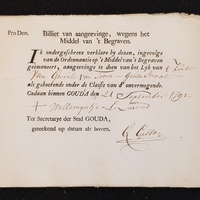 Pro Deo. Billiet van aangeevinge, wegens het
Middel van 't Begraven.
Ik ondergeschreve verklare by deezen, ingevolge
van de Ordonnantie op 't Middel van 't Begraven
geëmaneert, aangeevinge te doen van het Lyk van
Jan
als gehoorende onder de Classis van d' onvermogende.
Gedaan binnen GOUDA den 21 September 1792
+ Willemyntje
Ter Secretarye der Stad GOUDA,
geteekend op datum als boven,